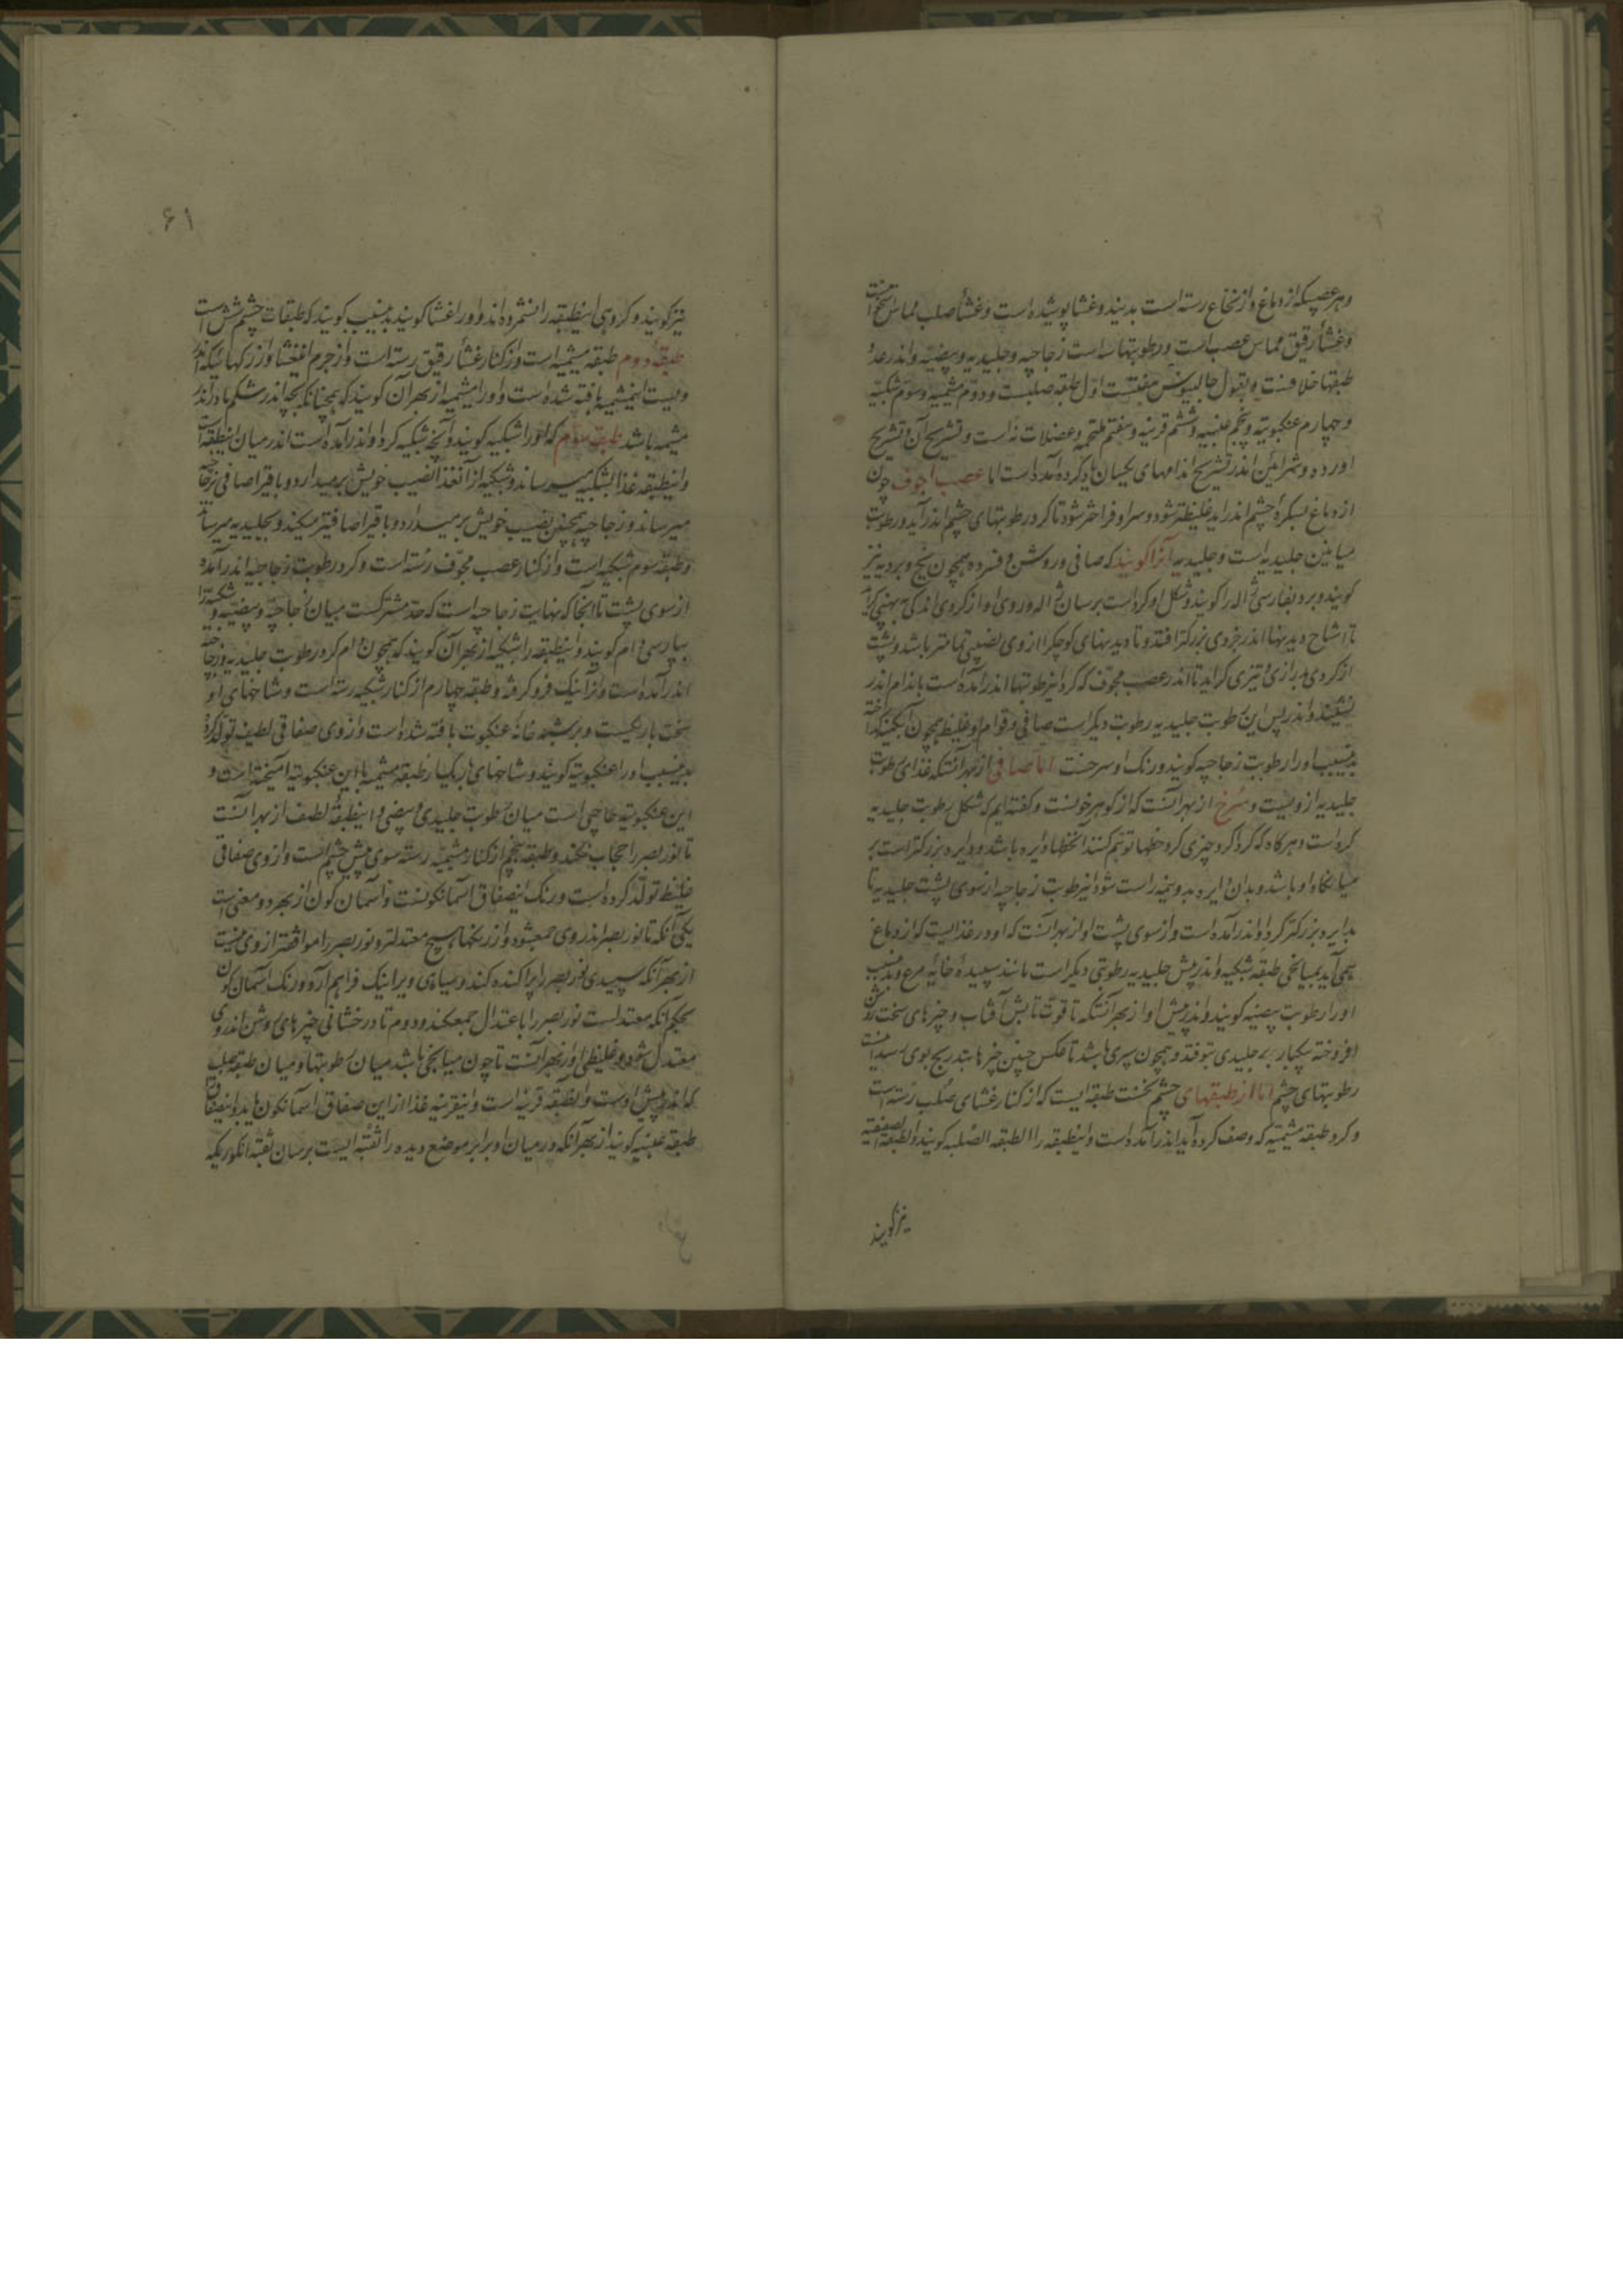 وهر عصبیکه از دماغ و از نخاع رسته است بدیندو غشا پوشیده است و غشأ صلب مماس استخوانست
و غشأ رقیق مماس عصب است و رطوبتها سه است زجاجیه و جلیدیه و بیضیه و اندر عدد
طبقها خلافست و بقول جالینوس هفتست اول طبقه صلبست و دوم مشیمیه و سوم شبکیه
و چهارم عنکبوتیه و پنجم عنبیه و ششم قرنیه و هفتم ملتحمه و عضلات نه است و تشریح آن و تشریح
اورده و شرائین اندر تشریح اندامهای یکسان یاد کرده آمده است اما عصب اجوف چون
از دماغ بسکرهٔ چشم اندر اید غلیظتر شود و سر او فراختر شود تا کرد رطوبتهای چشم اندر آید و رطوبت
میانین جلیدیه است و جلیدیه آنرا کویند که صافی و روشن و فسرده همچون یخ و بردیه نیز
کویند و برد بفارسی ژاله را کویند و شکل او کرد است برسان ژاله و روی او از کردی اندکی بپهنی کراید
تا اشباح دیدنیها اندر جزوی بزرکتر افتد و تا دیدنیهای کوچکرا از وی نصیبی تمامتر باشد و پشت
از کردی بدرازی و تیزی کراید تا اندر عصب مجوف که کرد اینرطوبتها اندر آمده است باندام اندر
نشیند و اندر پس این رطوبت جلیدیه رطوبت دیکر است صافی و قوام او غلیظ همچون آبکینه کداخته
بدینسبب او را رطوبت زجاجیه کویند و رنک او سرخست اما صافی از بهر آنستکه غذای رطوبت
جلیدیه ازویست و سرخ از بهر آنست که از کوهر خونست و کفته ایم که شکل رطوبت جلیدیه
کرد است و هر کاه که کرد کرد چیزی کرد خطها توهم کنند آنخطها دایره باشد و دایره بزرکتر است بر
میانکاه او باشد و بدان دایره بدو نیمه راست شود اینرطوبت زجاجیه از سوی پشت جلیدیه تا
بدایره بزرکتر کرد او اندر آمده است و از سوی پشت او از بهر آنست که او در غذائیست که از دماغ
همی آید بمیانجی طبقه شبکیه و اندر پیش جلیدیه رطوبتی دیکر است مانند سپیدهٔ خایهٔ مرغ و بدینسبب
او را رطوبت بیضیه کویند و اندر پیش او از بهر آنستکه تا قوت تابش آفتاب و چیزهای سخت روشن
افروخته یکبار بر جلیدی نیوفتد و همچون سپری باشد تا عکس چنین چیزها بتدریج بوی رسد اینست
رطوبتهای چشم اما از طبقهای چشم نخست طبقه ایست که از کنار غشای صلب رسته است
و کرد طبقه مشیمیه که وصف کرده آید اندر آمده است و اینطبقه را الطبقه الصلبه کویند و الطبقه الصفیقیه
نیز کویند
۶۱
نیز کویند و کروهی اینطبقه را نشمرده اند و او را غشا کویند بدینسبب کویند که طبقات چشم شش است
طبقه دوم طبقه مشیمیه است و از کنار غشأ رقیق رسته است و از جرم اینغشا و از رکها که اندر
ویست اینمشیمیه بافته شده است و او را مشیمیه از بهر آن کویند که همچنانکه بچه اندر شکم مادر اندر
مشیمه باشد طبقه سوم که او را شبکیه کویند و آنچه شبکیه کرد او اندر آمده است اندر میان اینطبقه است
و اینطبقه غذا بشبکیه میرساند و شبکیه از آنغذا نصیب خویش برمیدارد و باقیرا صافی بزجاجیه
میرساند و زجاجیه همچنین نصیب خویش برمیدارد و باقیرا صافیتر میکند و بجلیدیه میرساند
و طبقه سوم شبکیه است و از کنار عصب مجوف رسته است و کرد رطوبت زجاجیه اندر آمده
از سوی پشت تا آنجا که نهایت زجاجیه است که حد مشترکست میان زجاجیه و بیضیه و شبکیه را
بپارسی دام کویند و اینطبقه را شبکیه از بهر آن کویند که همچون دام کرد رطوبت جلیدیه و زجاجیه
اندر آمده است و آنرا نیک فرو کرفته و طبقه چهارم از کنار شبکیه رسته است و شاخهای او
سخت باریکست و بر شبه خانه عنکبوت بافته شده است و از وی صفاقی لطیف تولد کرده
بدینسبب او را عنکبوتیه کویند و شاخهای باریک از طبقه مشیمیه با این عنکبوتیه آمیخته است و
این عنکبوتیه حاجبی است میان رطوبت جلیدی و بیضی و اینطبقه لطیف از بهر آنست
تا نور بصر را حجاب نکند و طبقه پنجم از کنار مشیمیه رسته سوی پیش چشم است و از وی صفاقی
غلیظ تولد کرده است و رنک اینصفاق آسمانکونست و آسمان کون از بهر دو معنی است
یکی آنکه تا نور بصر اندر وی جمع شود و از رنکها هیچ معتدلتر و نور بصر را موافقتر از وی نیست
از بهر آنکه سپیدی نور بصر را پراکنده کند و سیاهی ویرا نیک فراهم آرد و رنک آسمان کون
بحکم آنکه معتدلست نور بصر را باعتدال جمعکند و دوم تا درخشانی چیزهای روشن اندر وی
معتدل شود و غلیظی او از بهر آنست تا چون میانجی باشد میان رطوبتها و میان طبقه صلب
که اندر پیش اوست و آنطبقه قرنیه است و اینقرنیه غذا از این صفاق آسمانکون یابد و اینصفاق را
طبقه عنبیه کویند از بهر آنکه در میان او برابر موضع دیده را ثقبه ایست برسان ثقبه انکوریکه